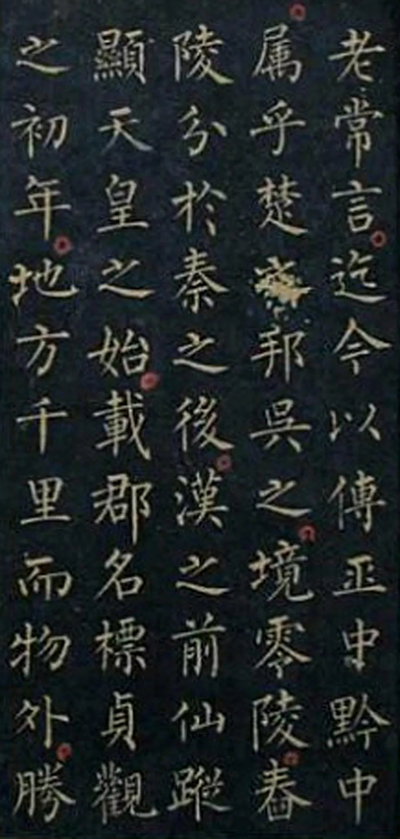 老常言迄今以傳巫中黔中
属乎楚邦吳之境零陵舂
陵分於秦之後漢之前仙蹤
顯天皇之始載郡名標貞觀
之初年地方千里而物外勝